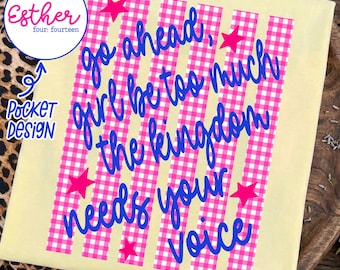 Esther
four: fourteen
POCKET
DESIGN
go ahead,
girl be too much
the kingdom
needs your
voice